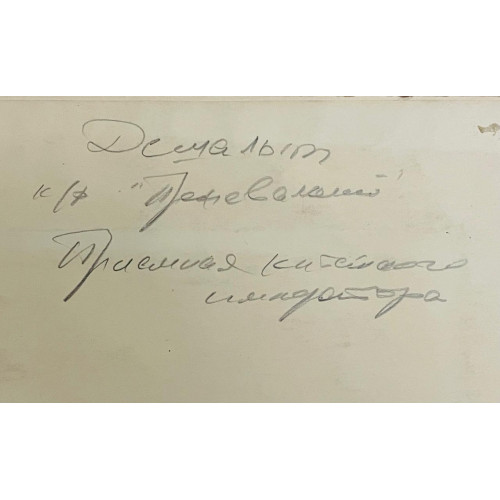 Детали
к/ф "Пржевальский"
Приемная китайского
императора